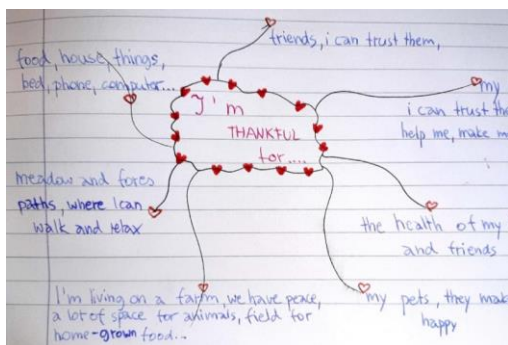 friends, i can trust them,
food, house, things,
bed, phone, computer...
my
i can trust the
help me, make m
I'm
THANKFUL
for....
meadow and fores
paths, where I can
walk and relax
the health of my
and friends
I'm living on a farm, we have peace,
a lot of space for animals, field for
home-grown food...
my pets, they mak
happy